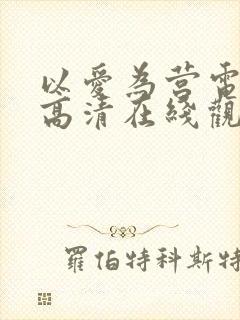 以愛為营電
高清在綫觀
羅伯特科斯特